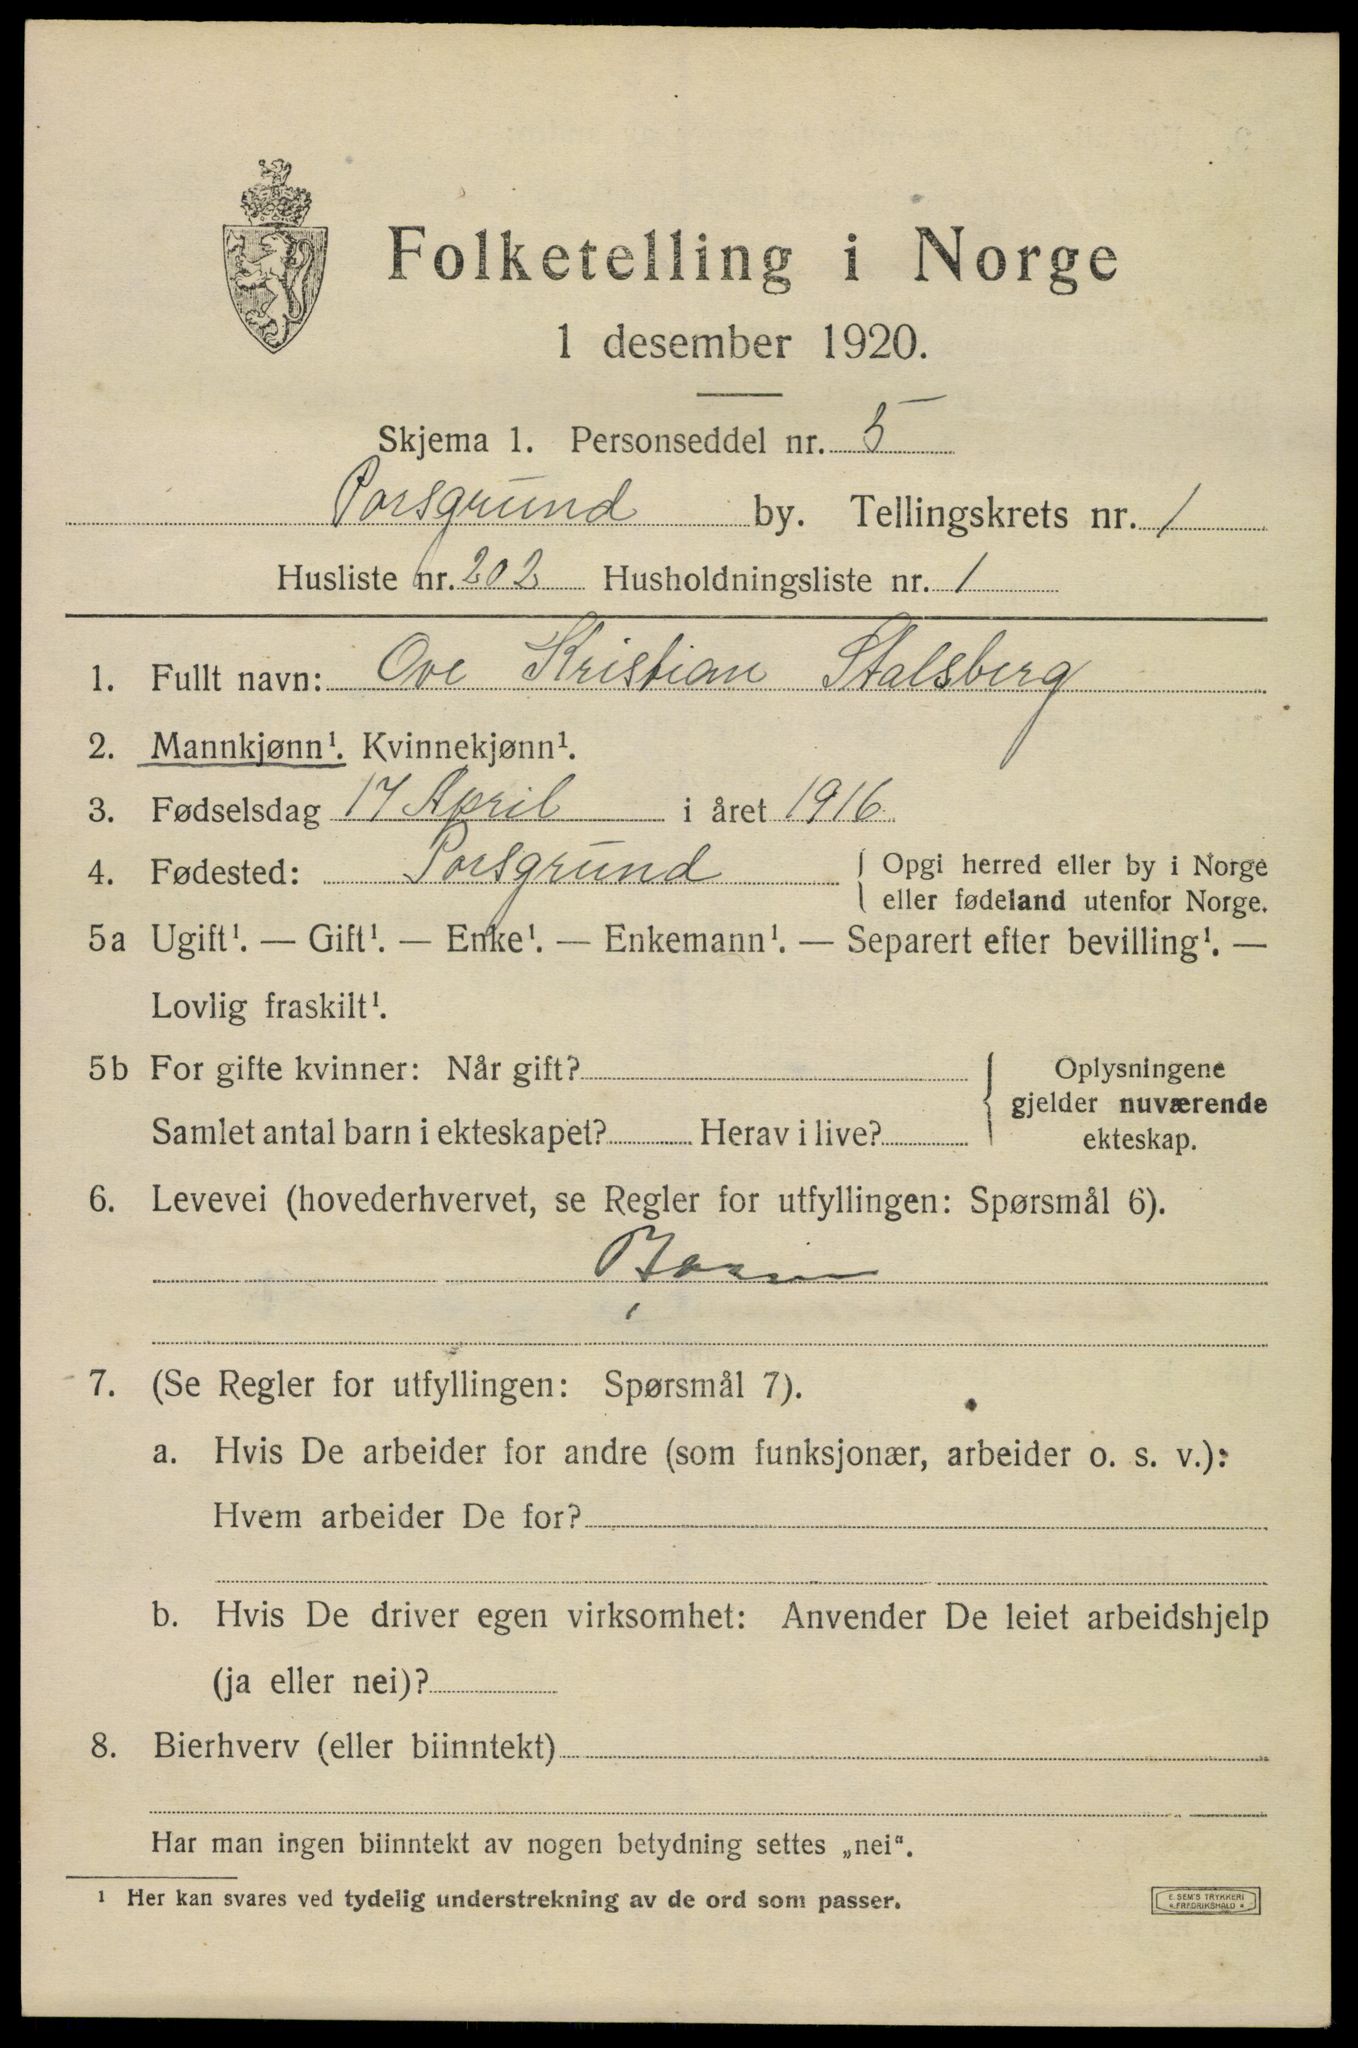 Folketelling i Norge
1 desember 1920.
Skjema 1. Personseddel nr. 5
Porsgrund by. Tellingskrets nr. 1
Husliste nr. 202 Husholdningsliste nr. 1
1. Fullt navn: Ove Kristian Stalsberg
2. Mannkjønn¹. Kvinnekjønn¹.
3. Fødselsdag 17 April i året 1916
4. Fødested: Porsgrund { Opgi herred eller by i Norge
eller fødeland utenfor Norge.
5a Ugift¹. — Gift¹. — Enke¹. — Enkemann¹. — Separert efter bevilling¹. —
Lovlig fraskilt¹.
5b For gifte kvinner: Når gift?
Samlet antal barn i ekteskapet? Herav i live?
Oplysningene
gjelder nuværende
ekteskap.
6. Levevei (hovederhvervet, se Regler for utfyllingen: Spørsmål 6).
7. (Se Regler for utfyllingen: Spørsmål 7).
a. Hvis De arbeider for andre (som funksjonær, arbeider o. s. v.):
Hvem arbeider De for?
b. Hvis De driver egen virksomhet: Anvender De leiet arbeidshjelp
(ja eller nei)?
8. Bierhverv (eller biinntekt)
Har man ingen biinntekt av nogen betydning settes „nei“.
¹ Her kan svares ved tydelig understrekning av de ord som passer.
E. SEM'S TRYKKERI
FREDRIKSHALD